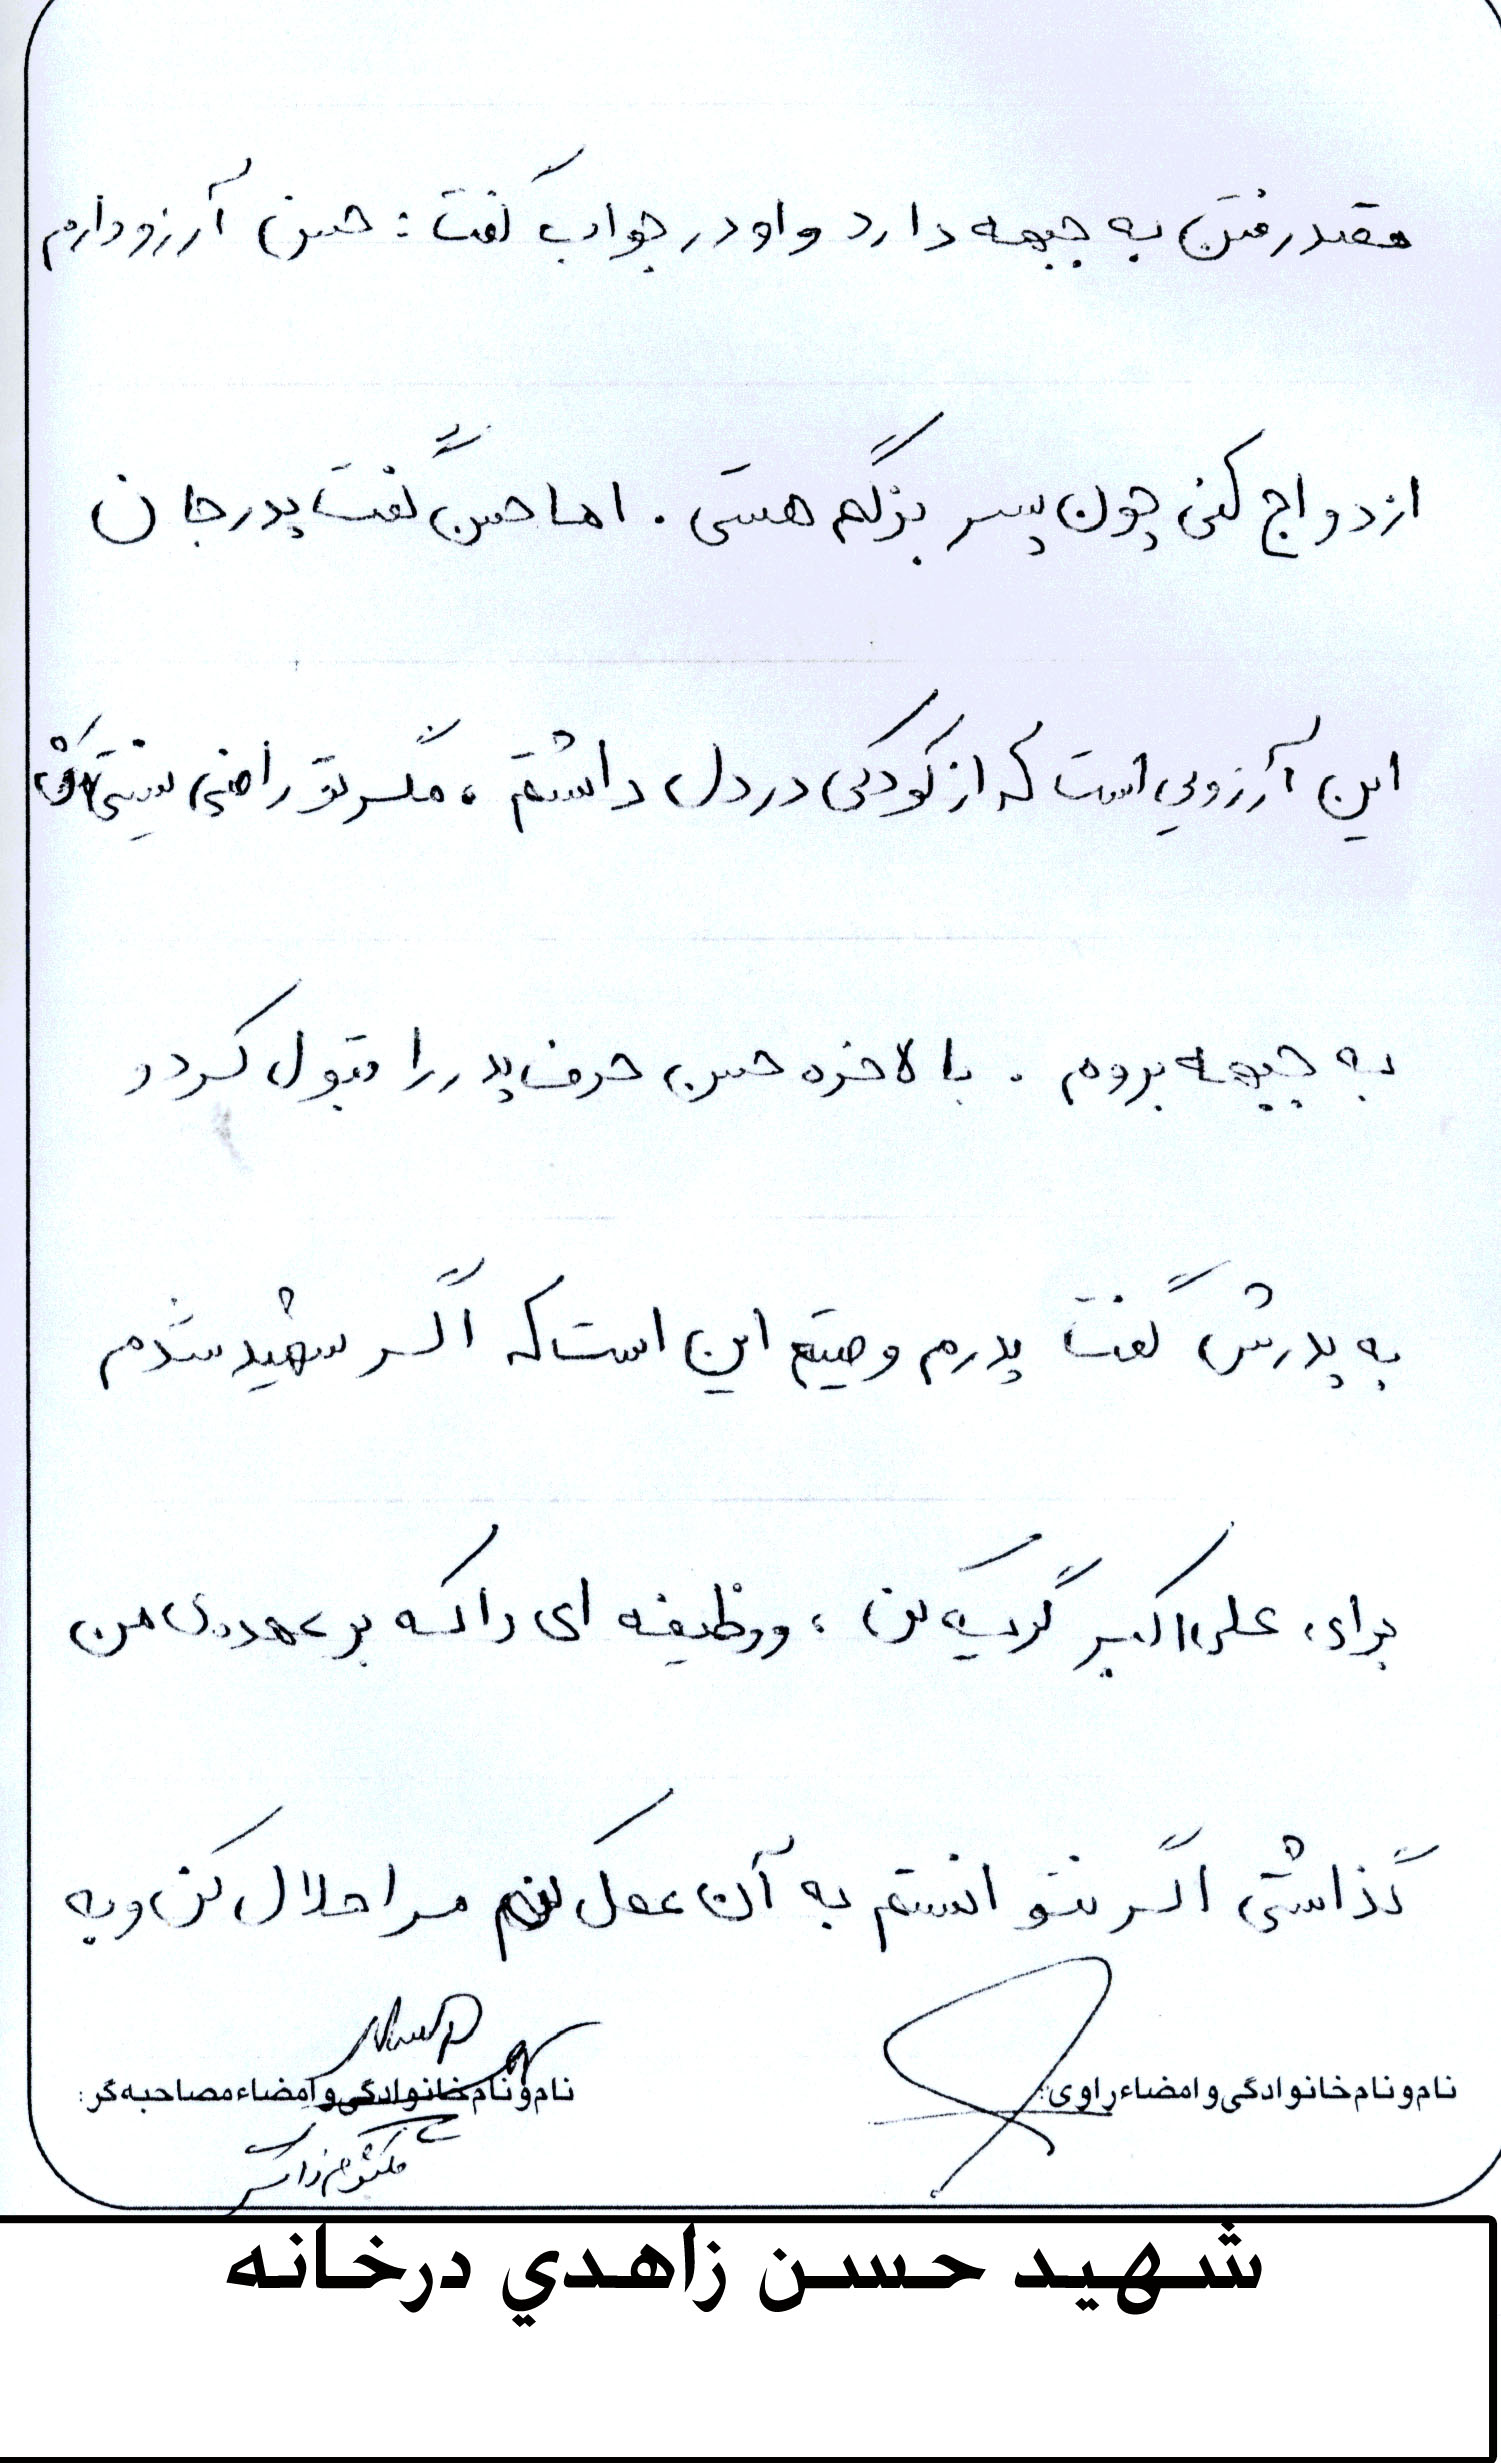 قصد رفتن به جبهه دارد و او در جواب گفت : حسن آرزو دارم
ازدواج کنی چون پسر بزرگم هستی . اما حسن گفت پدر جان
این آرزویی است که از کودکی در دل داشتم ، مگر تو راضی نیستی
به جبهه بروم . بالاخره حسن حرف پدر را قبول کرد و
به پدرش گفت پدرم وصیتم این است که اگر شهید شدم
برای علی اکبر گریه کن ، و وظیفه ای را که بر عهده ی من
گذاشتی اگر نتوانستم به آن عمل کنم مرا حلال کن و به
نام و نام خانوادگی و امضاء راوی:
نام و نام خانوادگی و امضاء مصاحبه گر:
شهيد حسن زاهدي درخانه